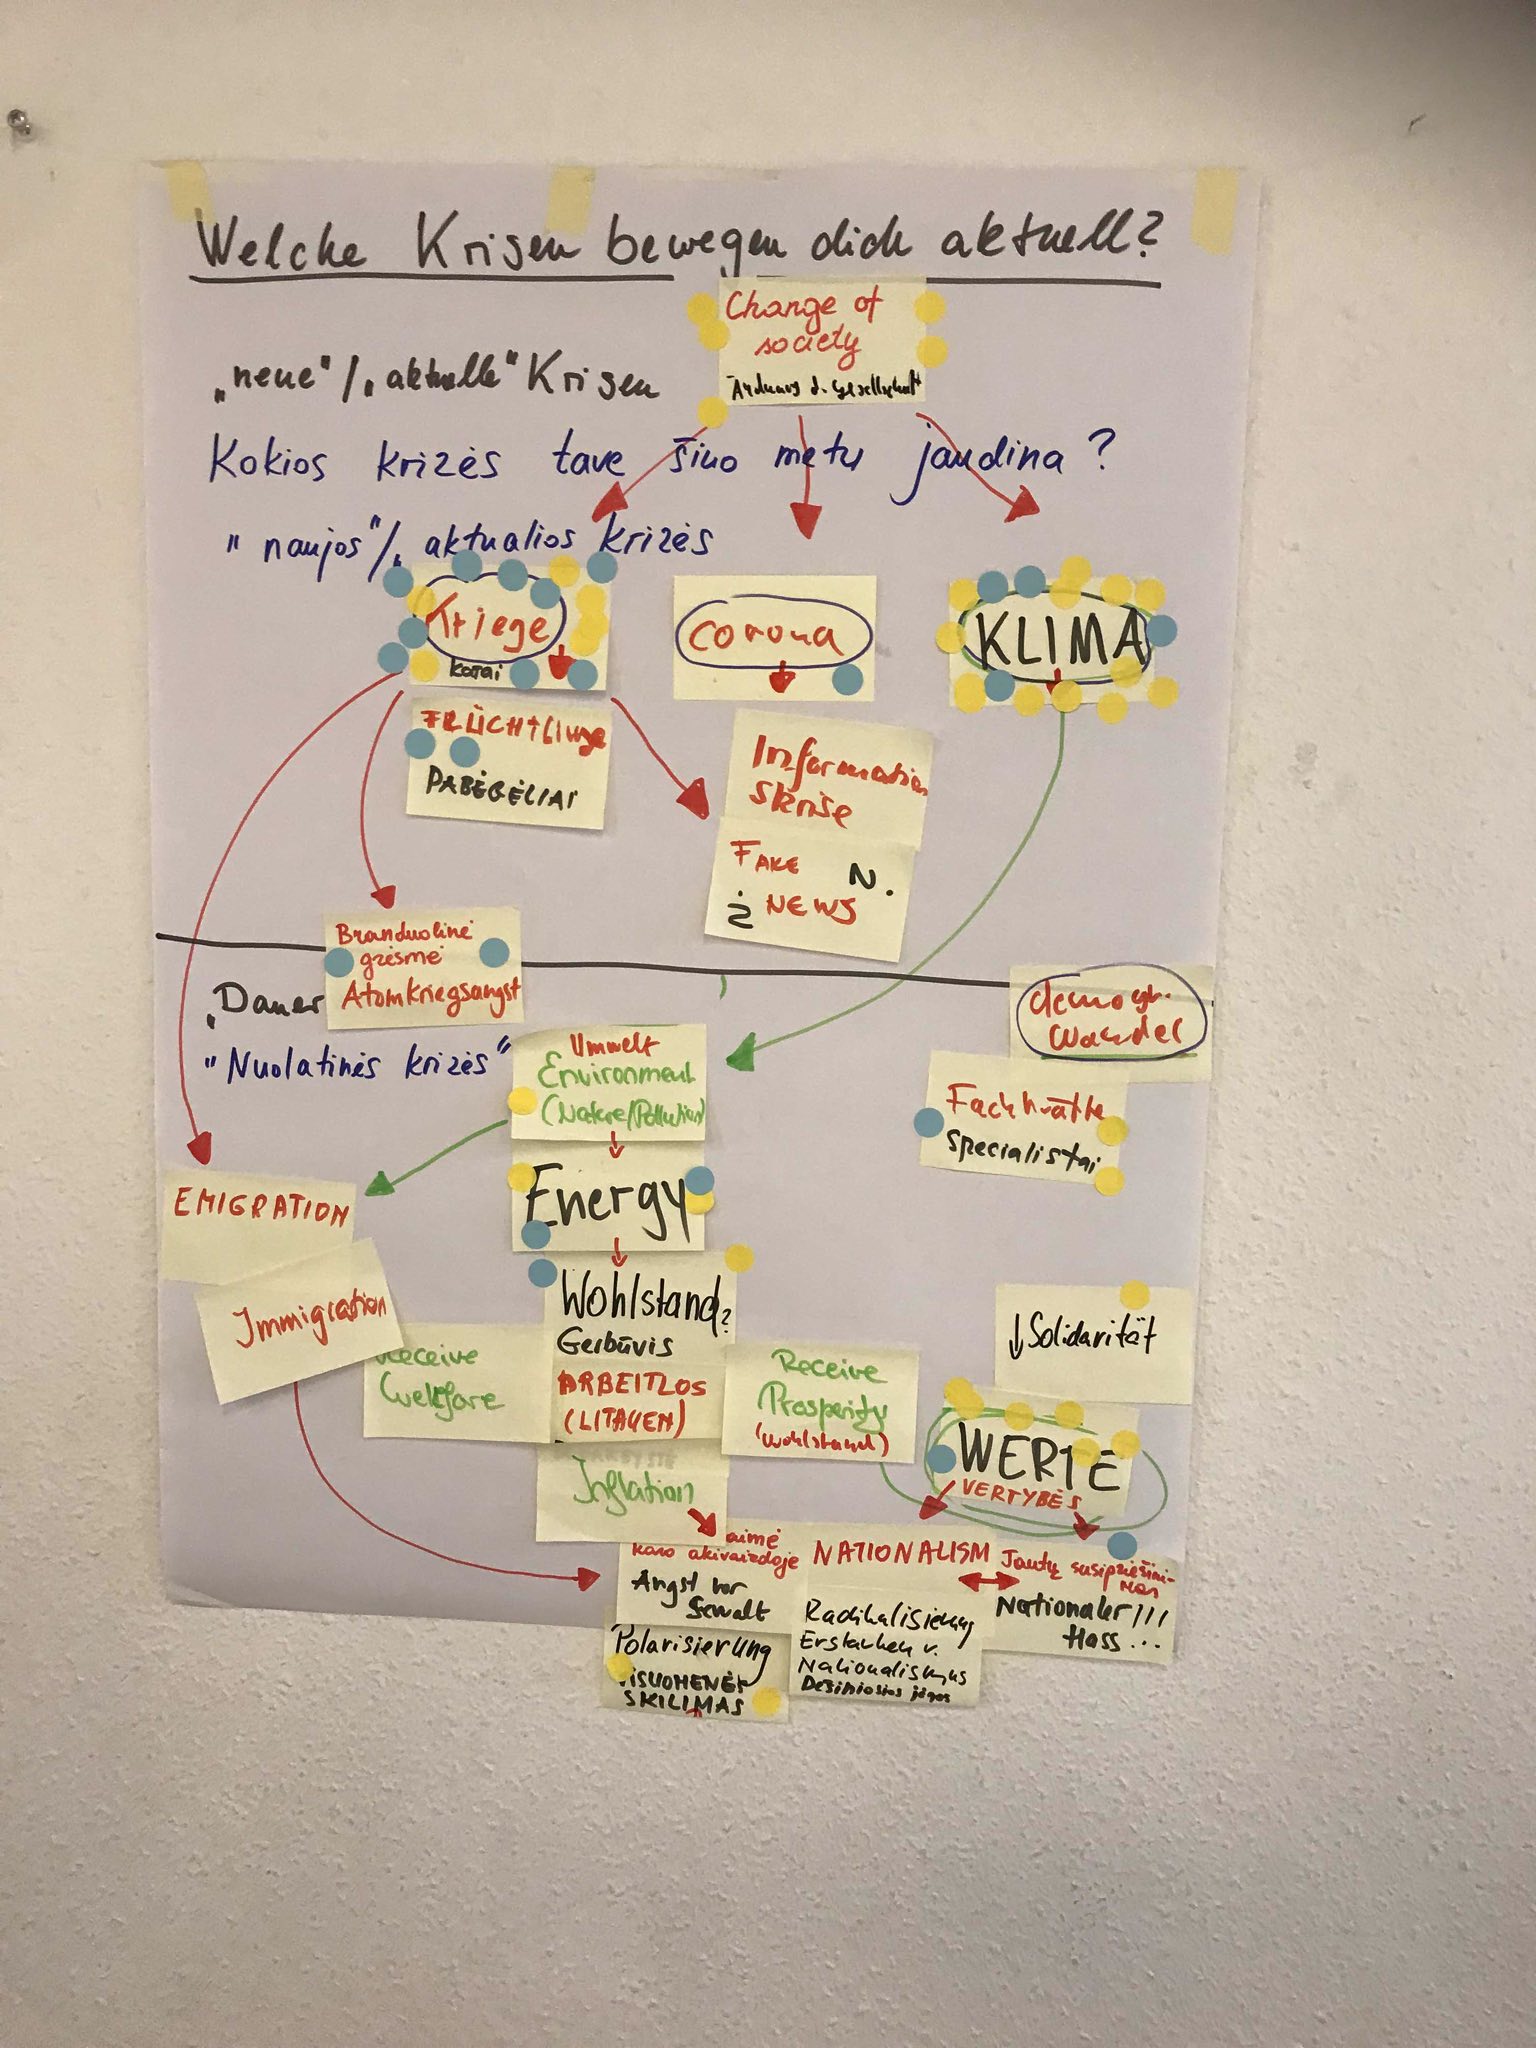 Welche Krisen bewegen dich aktuell?
Change of
society
d. Gesellschaft
„neue“/„aktuelle“ Krisen
Kokios krizės tave šiuo metu jaudina?
"naujos"/„aktualios krizės
Kriege
karai
corona
KLIMA
FLÜCHTLINGE
PABĖGĖLIAI
Information
skrise
FAKE N.
Ž NEWS
Branduolinė
grėsmė
Atomkriegsangst
„Dauer
"Nuolatinės krizės"
demogr.
wandel
Umwelt
Environment
(Nature/Pollution)
Fachkräfte
specialistai
EMIGRATION
Energy
Immigration
Wohlstand?
Gerbūvis
ARBEITLOS
(LITAUEN)
↓ Solidarität
Receive
Welfare
Receive
Prosperity
(Wohlstand)
WERTE
VERTYBĖS
Inflation
aimė
karo akivaizdoje
Angst vor
Gewalt
NATIONALISM
Jautų susipriešini-
mas
Nationaler!!!
Hass...
Polarisierung
ISUOMENĖS
SKILIMAS
Radikalisierung
Erstarken v.
Nationalismus
Dešiniosios jėgos